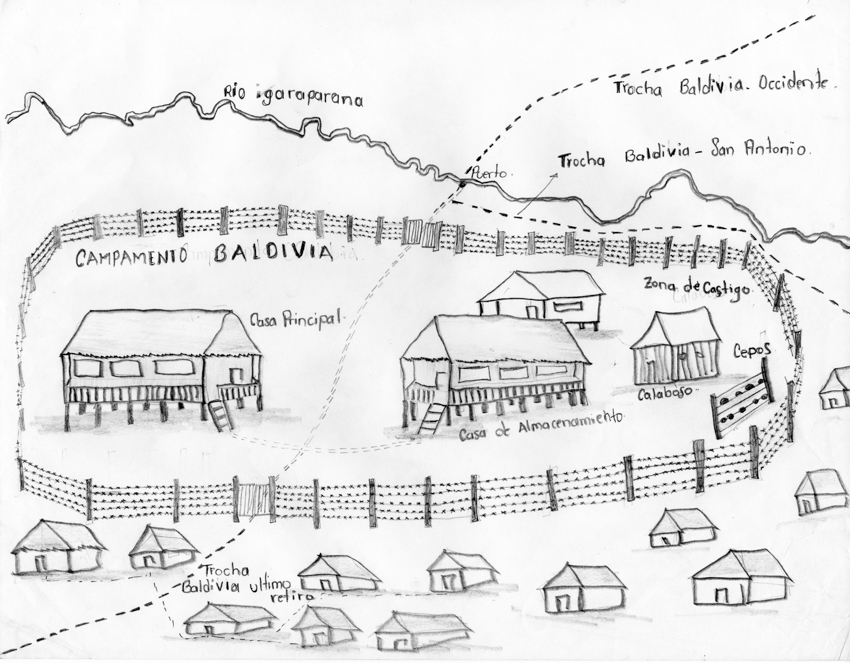 Rio igaraparana
Trocha Baldivia. Occidente.
Trocha Baldivia - San Antonio.
Puerto.
CAMPAMENTO BALDIVIA
Zona de Castigo
Casa Principal.
Cepos
Calaboso.
Casa de Almacenamiento.
Trocha
Baldivia ultimo
retiro